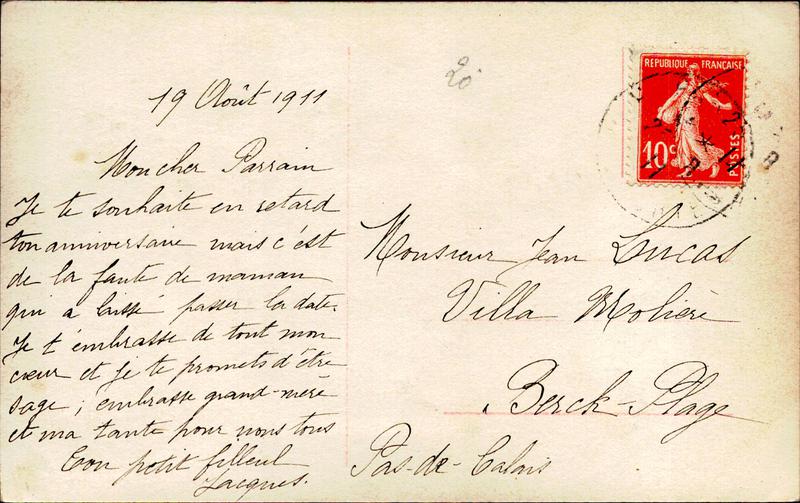 19 Août 1911
Mon cher Parrain
Je te souhaite en retard
ton anniversaire mais c'est
de la faute de maman
qui a laissé passer la date.
Je t'embrasse de tout mon
cœur et je te promets d'être
sage ; embrasse grand-mère
et ma tante pour nous tous
Ton petit filleul
Jacques.
20
REPUBLIQUE FRANÇAISE
10c
POSTES
Monsieur Jean Lucas
Villa Molière
Berck-Plage
Pas-de-Calais